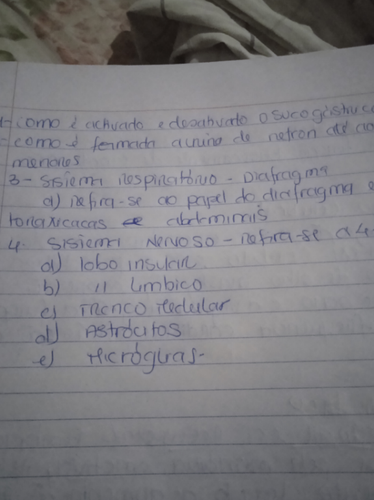 1- como é activado e desativado o suco gástrico
- como é formada a urina de nefron até ao
menores
3- Sistema respiratório - Diafragma
a) refira-se ao papel do diafragma e
toraxicacas e abdominis
4. Sistema Nervoso - refira-se a 4-
a) lobo insular
b) " Límbico
c) Tronco Medular
d) Astrócitos
e) Micróglias-